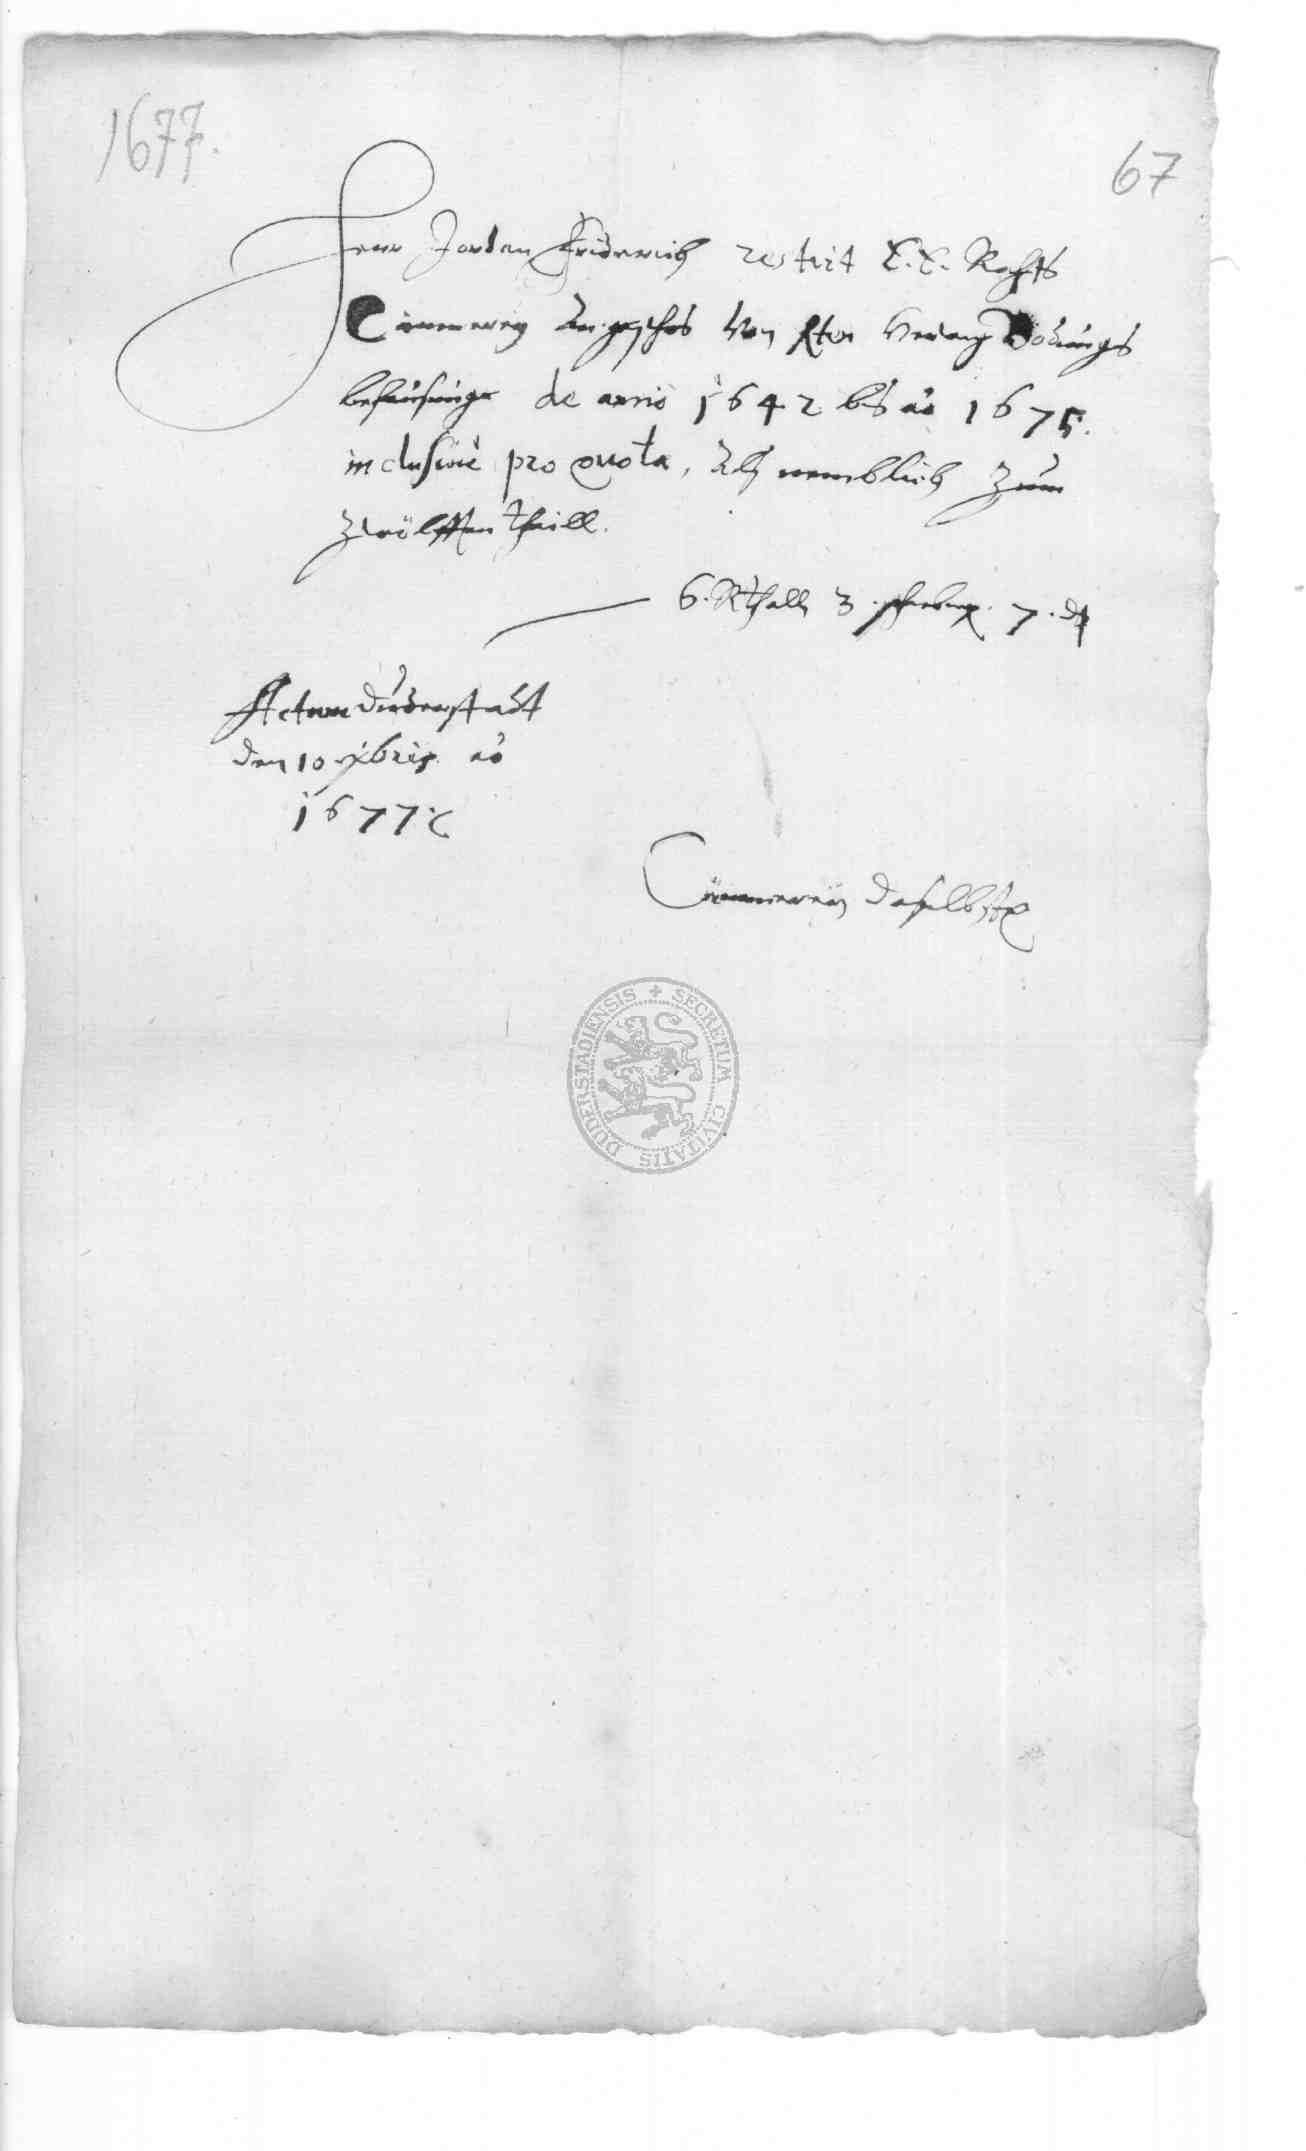 1677.
67
Herr Jordan Friderich restirt E. E. Rahts
Cämmereÿ an geschos von
behausunge de anno 1642 bis ao 1675.
inclusivè pro quota, Alß nemblich Zum
Zwölfften theill.
6. Rthall 3 7. d
Actum Duderstadt
den 10 xbris ao
1677.
Cämmereÿ daselbst
DUDERSTADIENSIS + SECRETUM CIVITATIS